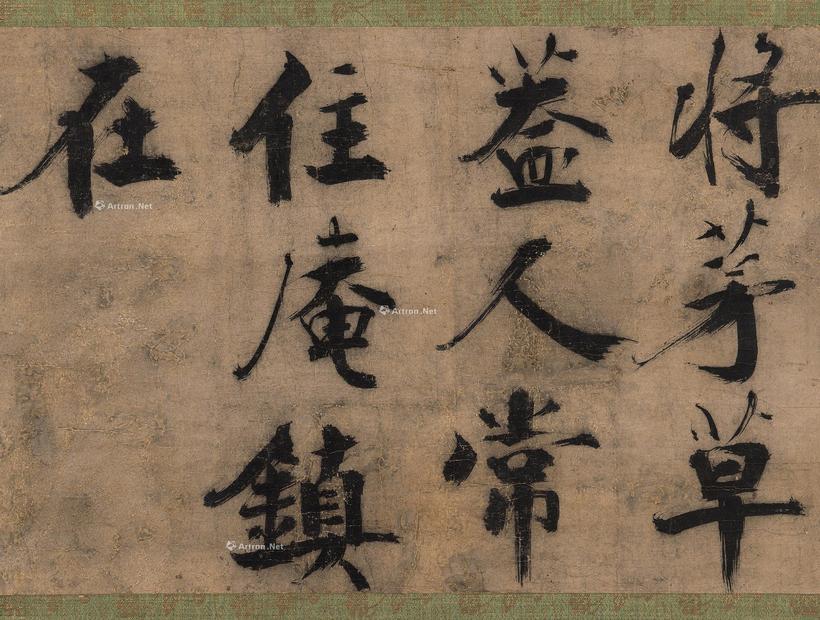 将茅草
葢人常
住庵鎮
在
Artron.Net
Artron.Net
Artron.Net